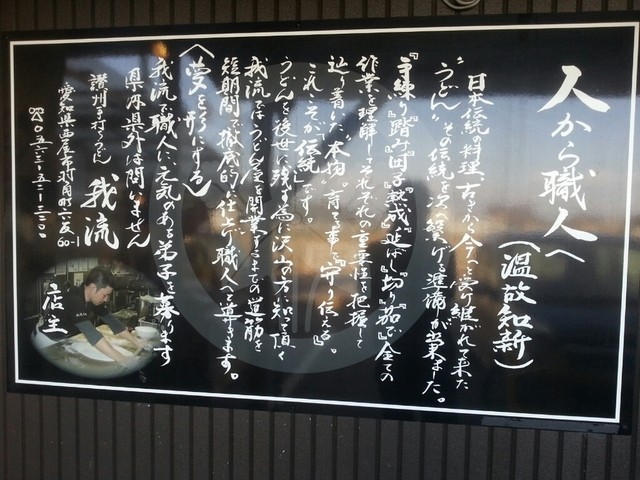 人から職人へ
(温故知新)
日本伝統の料理、古くから今へと受け継がれて来た
"うどん"その伝統を次へ繋げる準備が出来ました。
『手練り』『踏み』『団子』『熟成』『延ばし』『切り』『茹で』全ての
作業を理解してそれぞれの重要性を把握して
辿り着いた"本物"。育て事で『守り伝える』。
これこそが『伝統』です。
うどんを後世に残す為に沢山の方に知って頂く
我流ではうどん店を開業するまでの道筋を
短期間で徹底的に仕上げ職人へと導きます。
〈夢を形にする〉
我流で職人に、元気のある弟子を募ります
県内県外は問いません
讃州手打うどん 我流
愛知県西尾市
60-1
店主